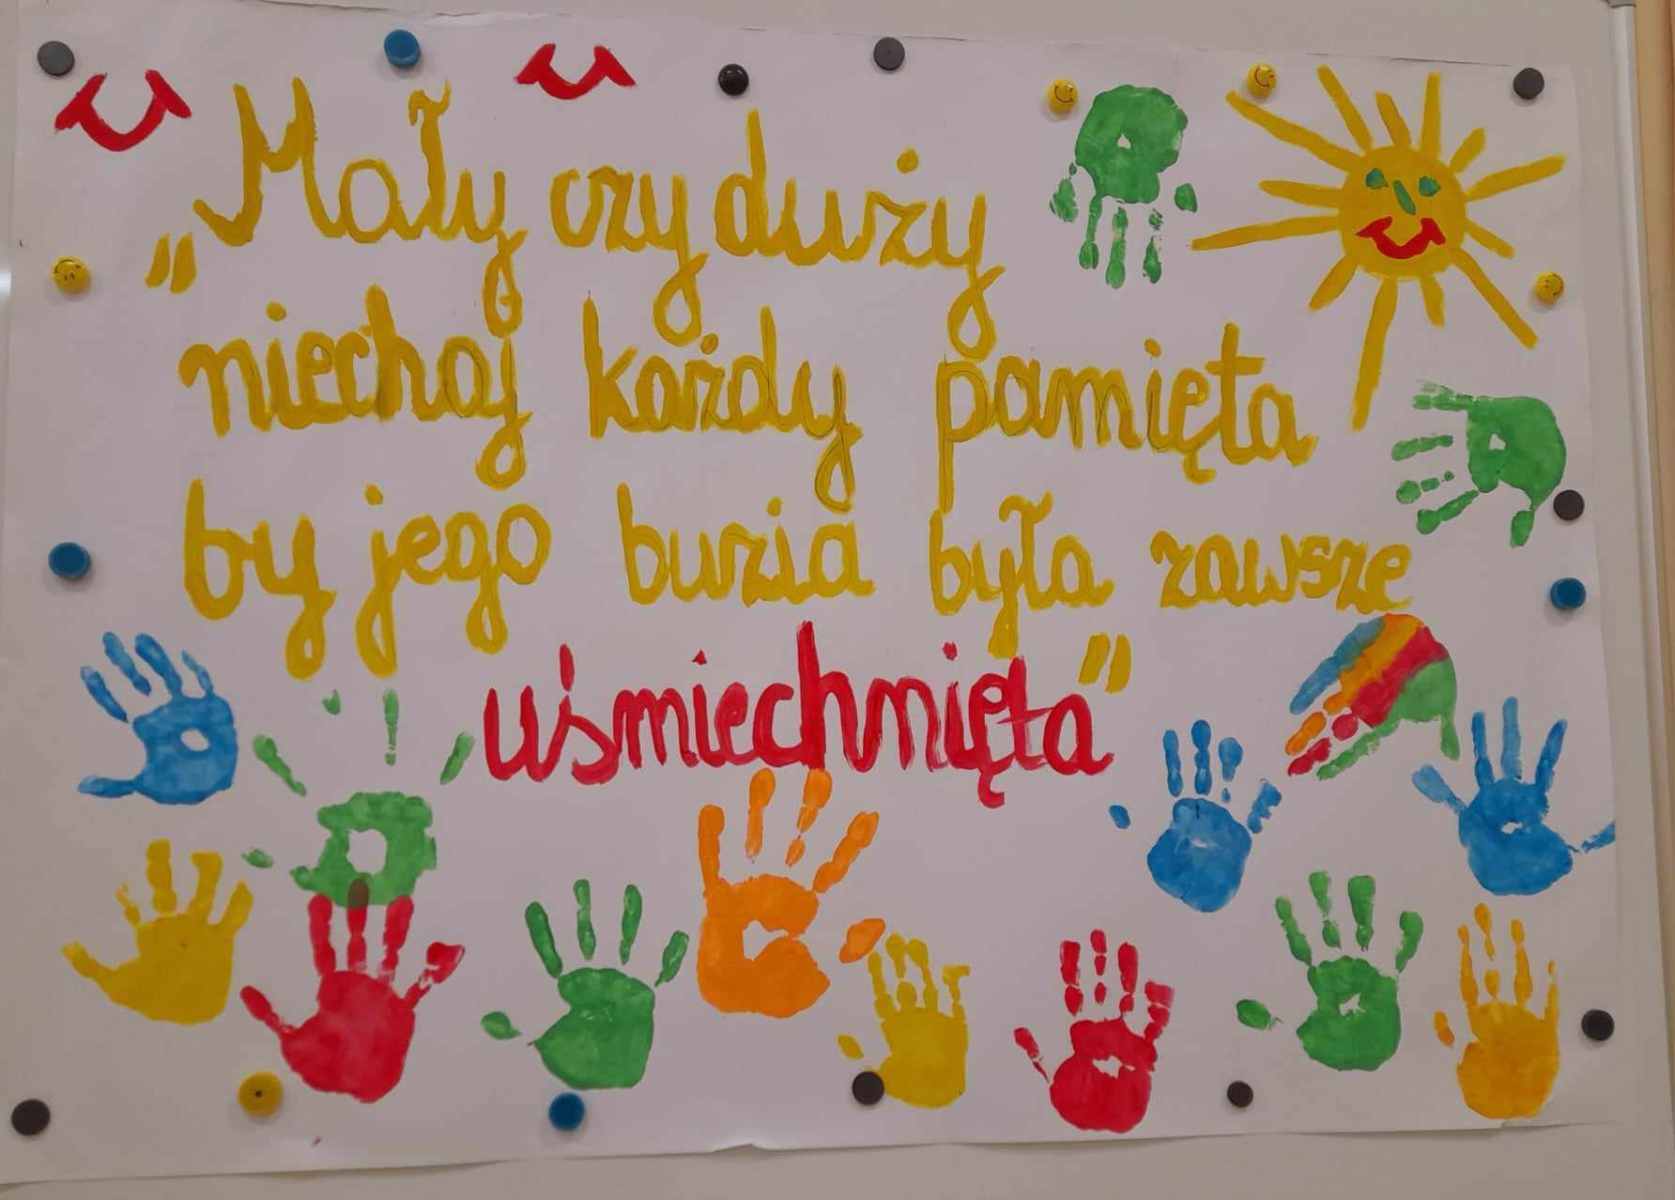 „Mały czy duży
niechaj każdy pamięta
by jego buzia była zawsze
uśmiechnięta”